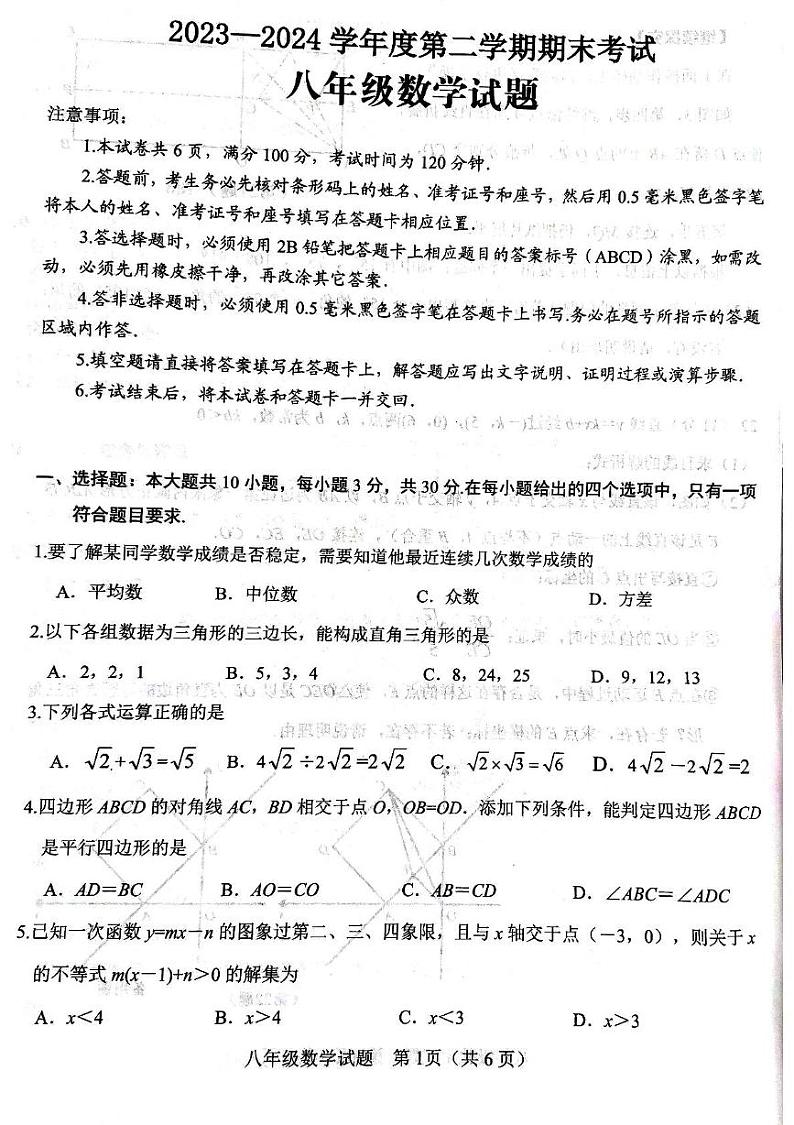 2023—2024学年度第二学期期末考试
八年级数学试题
注意事项：
1.本试卷共6页，满分100分，考试时间为120分钟.
2.答题前，考生务必先核对条形码上的姓名、准考证号和座号，然后用0.5毫米黑色签字笔
将本人的姓名、准考证号和座号填写在答题卡相应位置.
3.答选择题时，必须使用2B铅笔把答题卡上相应题目的答案标号（ABCD）涂黑，如需改
动，必须先用橡皮擦干净，再改涂其它答案.
4.答非选择题时，必须使用0.5毫米黑色签字笔在答题卡上书写.务必在题号所指示的答题
区域内作答.
5.填空题请直接将答案填写在答题卡上，解答题应写出文字说明、证明过程或演算步骤.
6.考试结束后，将本试卷和答题卡一并交回.
一、选择题：本大题共10小题，每小题3分，共30分.在每小题给出的四个选项中，只有一项
符合题目要求.
1.要了解某同学数学成绩是否稳定，需要知道他最近连续几次数学成绩的
A．平均数 B．中位数 C．众数 D．方差
2.以下各组数据为三角形的三边长，能构成直角三角形的是
A．2，2，1 B．5，3，4 C．8，24，25 D．9，12，13
3.下列各式运算正确的是
A．√2+√3=√5 B．4√2÷2√2=2√2 C．√2×√3=√6 D．4√2－2√2=2
4.四边形ABCD的对角线AC，BD相交于点O，OB=OD．添加下列条件，能判定四边形ABCD
是平行四边形的是
A．AD＝BC B．AO＝CO C．AB＝CD D．∠ABC＝∠ADC
5.已知一次函数y=mx－n的图象过第二、三、四象限，且与x轴交于点（－3，0），则关于x
的不等式m(x－1)+n＞0的解集为
A．x＜4 B．x＞4 C．x＜3 D．x＞3
八年级数学试题 第1页（共6页）